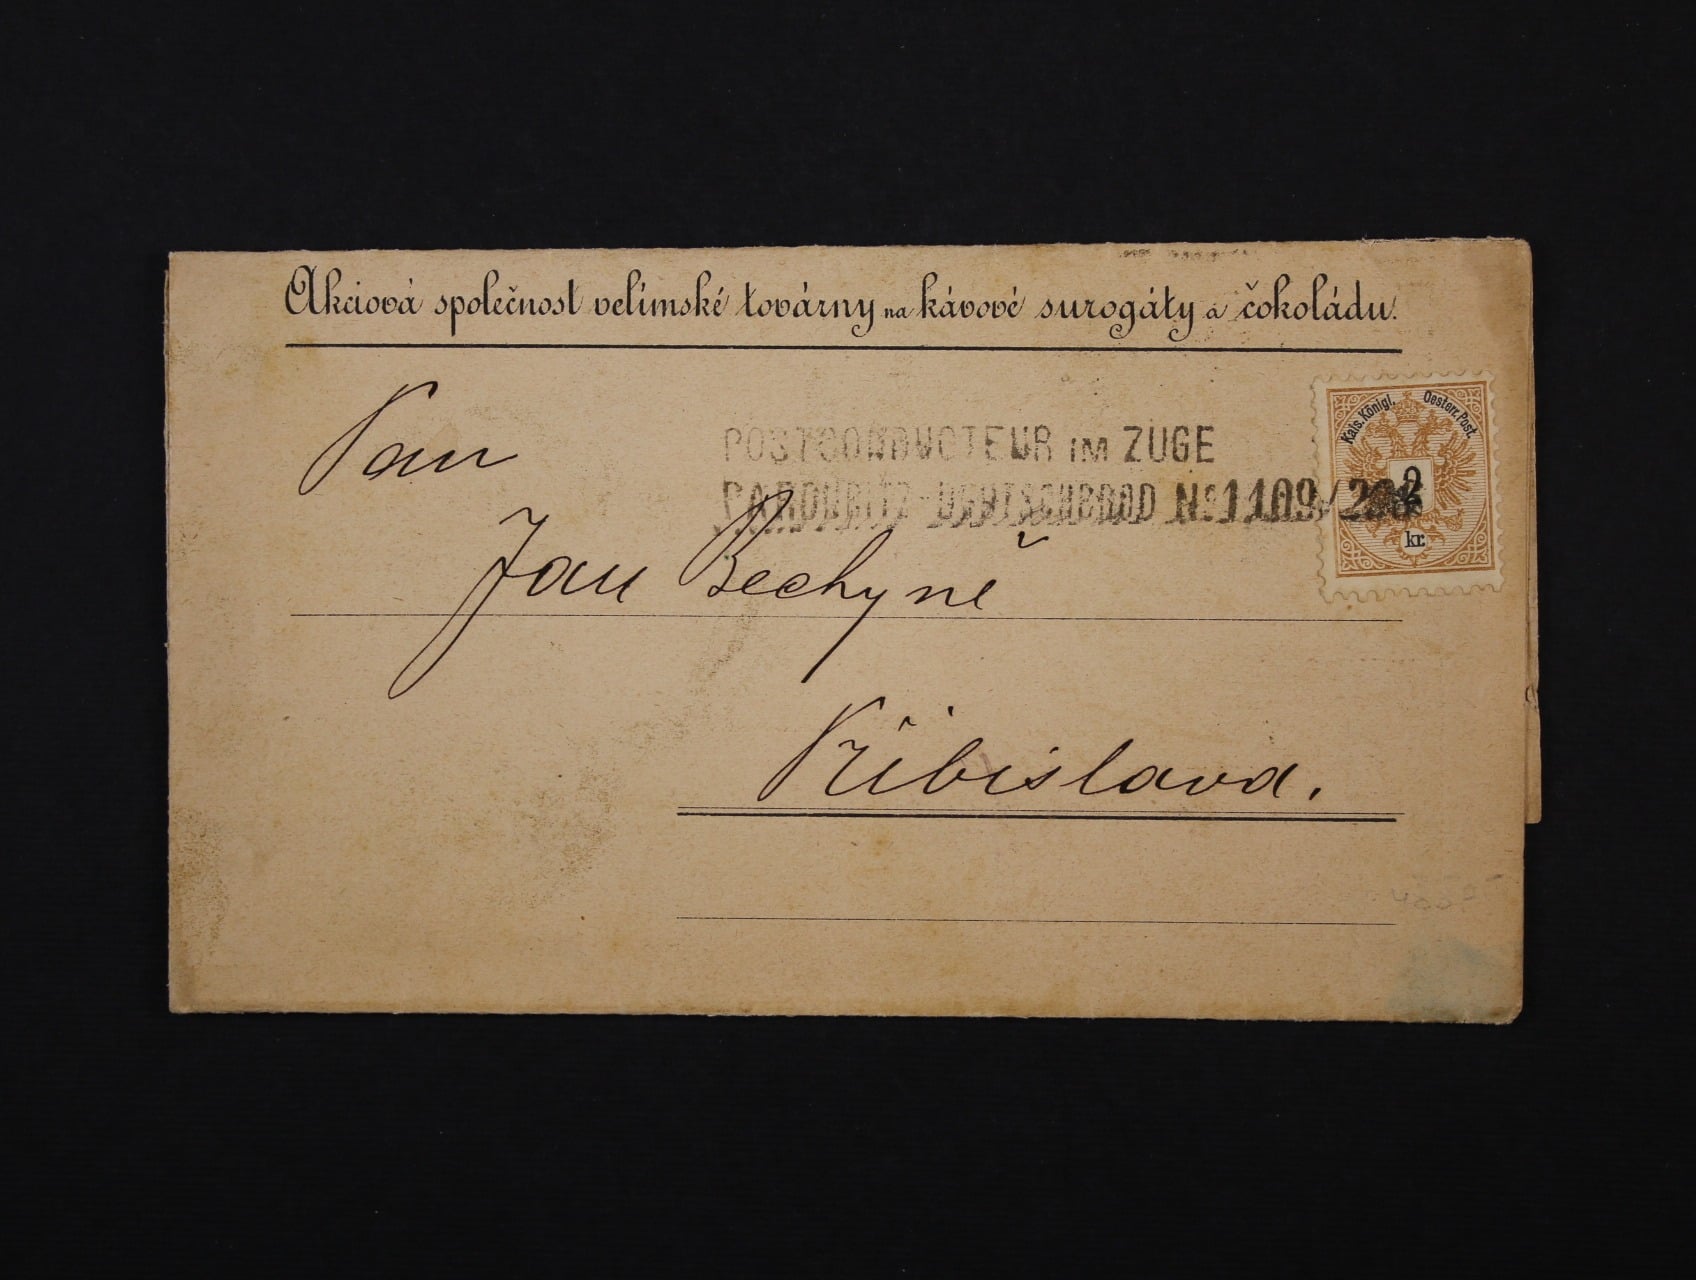 Akciová společnost velímské továrny na kávové surogáty a čokoládu.
Pan
POSTCONDUCTEUR IM ZUGE
PARDUBITZ-DEUTSCHBROD No 1109/
Kais. Königl. Oesterr. Post.
2
kr.
Jan Bechyně
Přibislava.